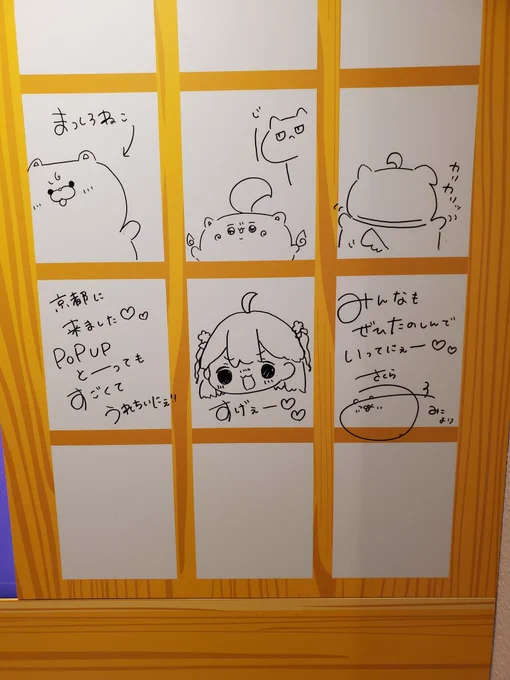 まっしろねこ
じー
カリカリッ
京都に
来ました♡♡
POPUP
とーっても
すごくて
うれちいにぇ!!
すげぇー♡♡
みんなも
ぜひたのしんで
いってにぇー♡♡
さくら
みこ
より